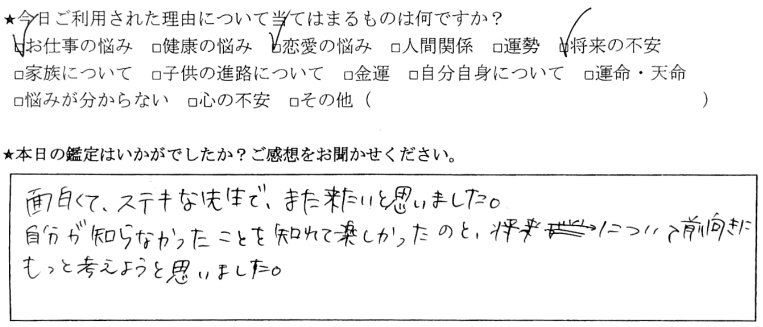 ★今日ご利用された理由について当てはまるものは何ですか?
☑お仕事の悩み □健康の悩み ☑恋愛の悩み □人間関係 □運勢 ☑将来の不安
□家族について □子供の進路について □金運 □自分自身について □運命・天命
□悩みが分からない □心の不安 □その他( )
★本日の鑑定はいかがでしたか?ご感想をお聞かせください。
面白くて、ステキな先生で、また来たいと思いました。
自分が知らなかったことを知れて楽しかったのと、将来について前向きに
もっと考えようと思いました。